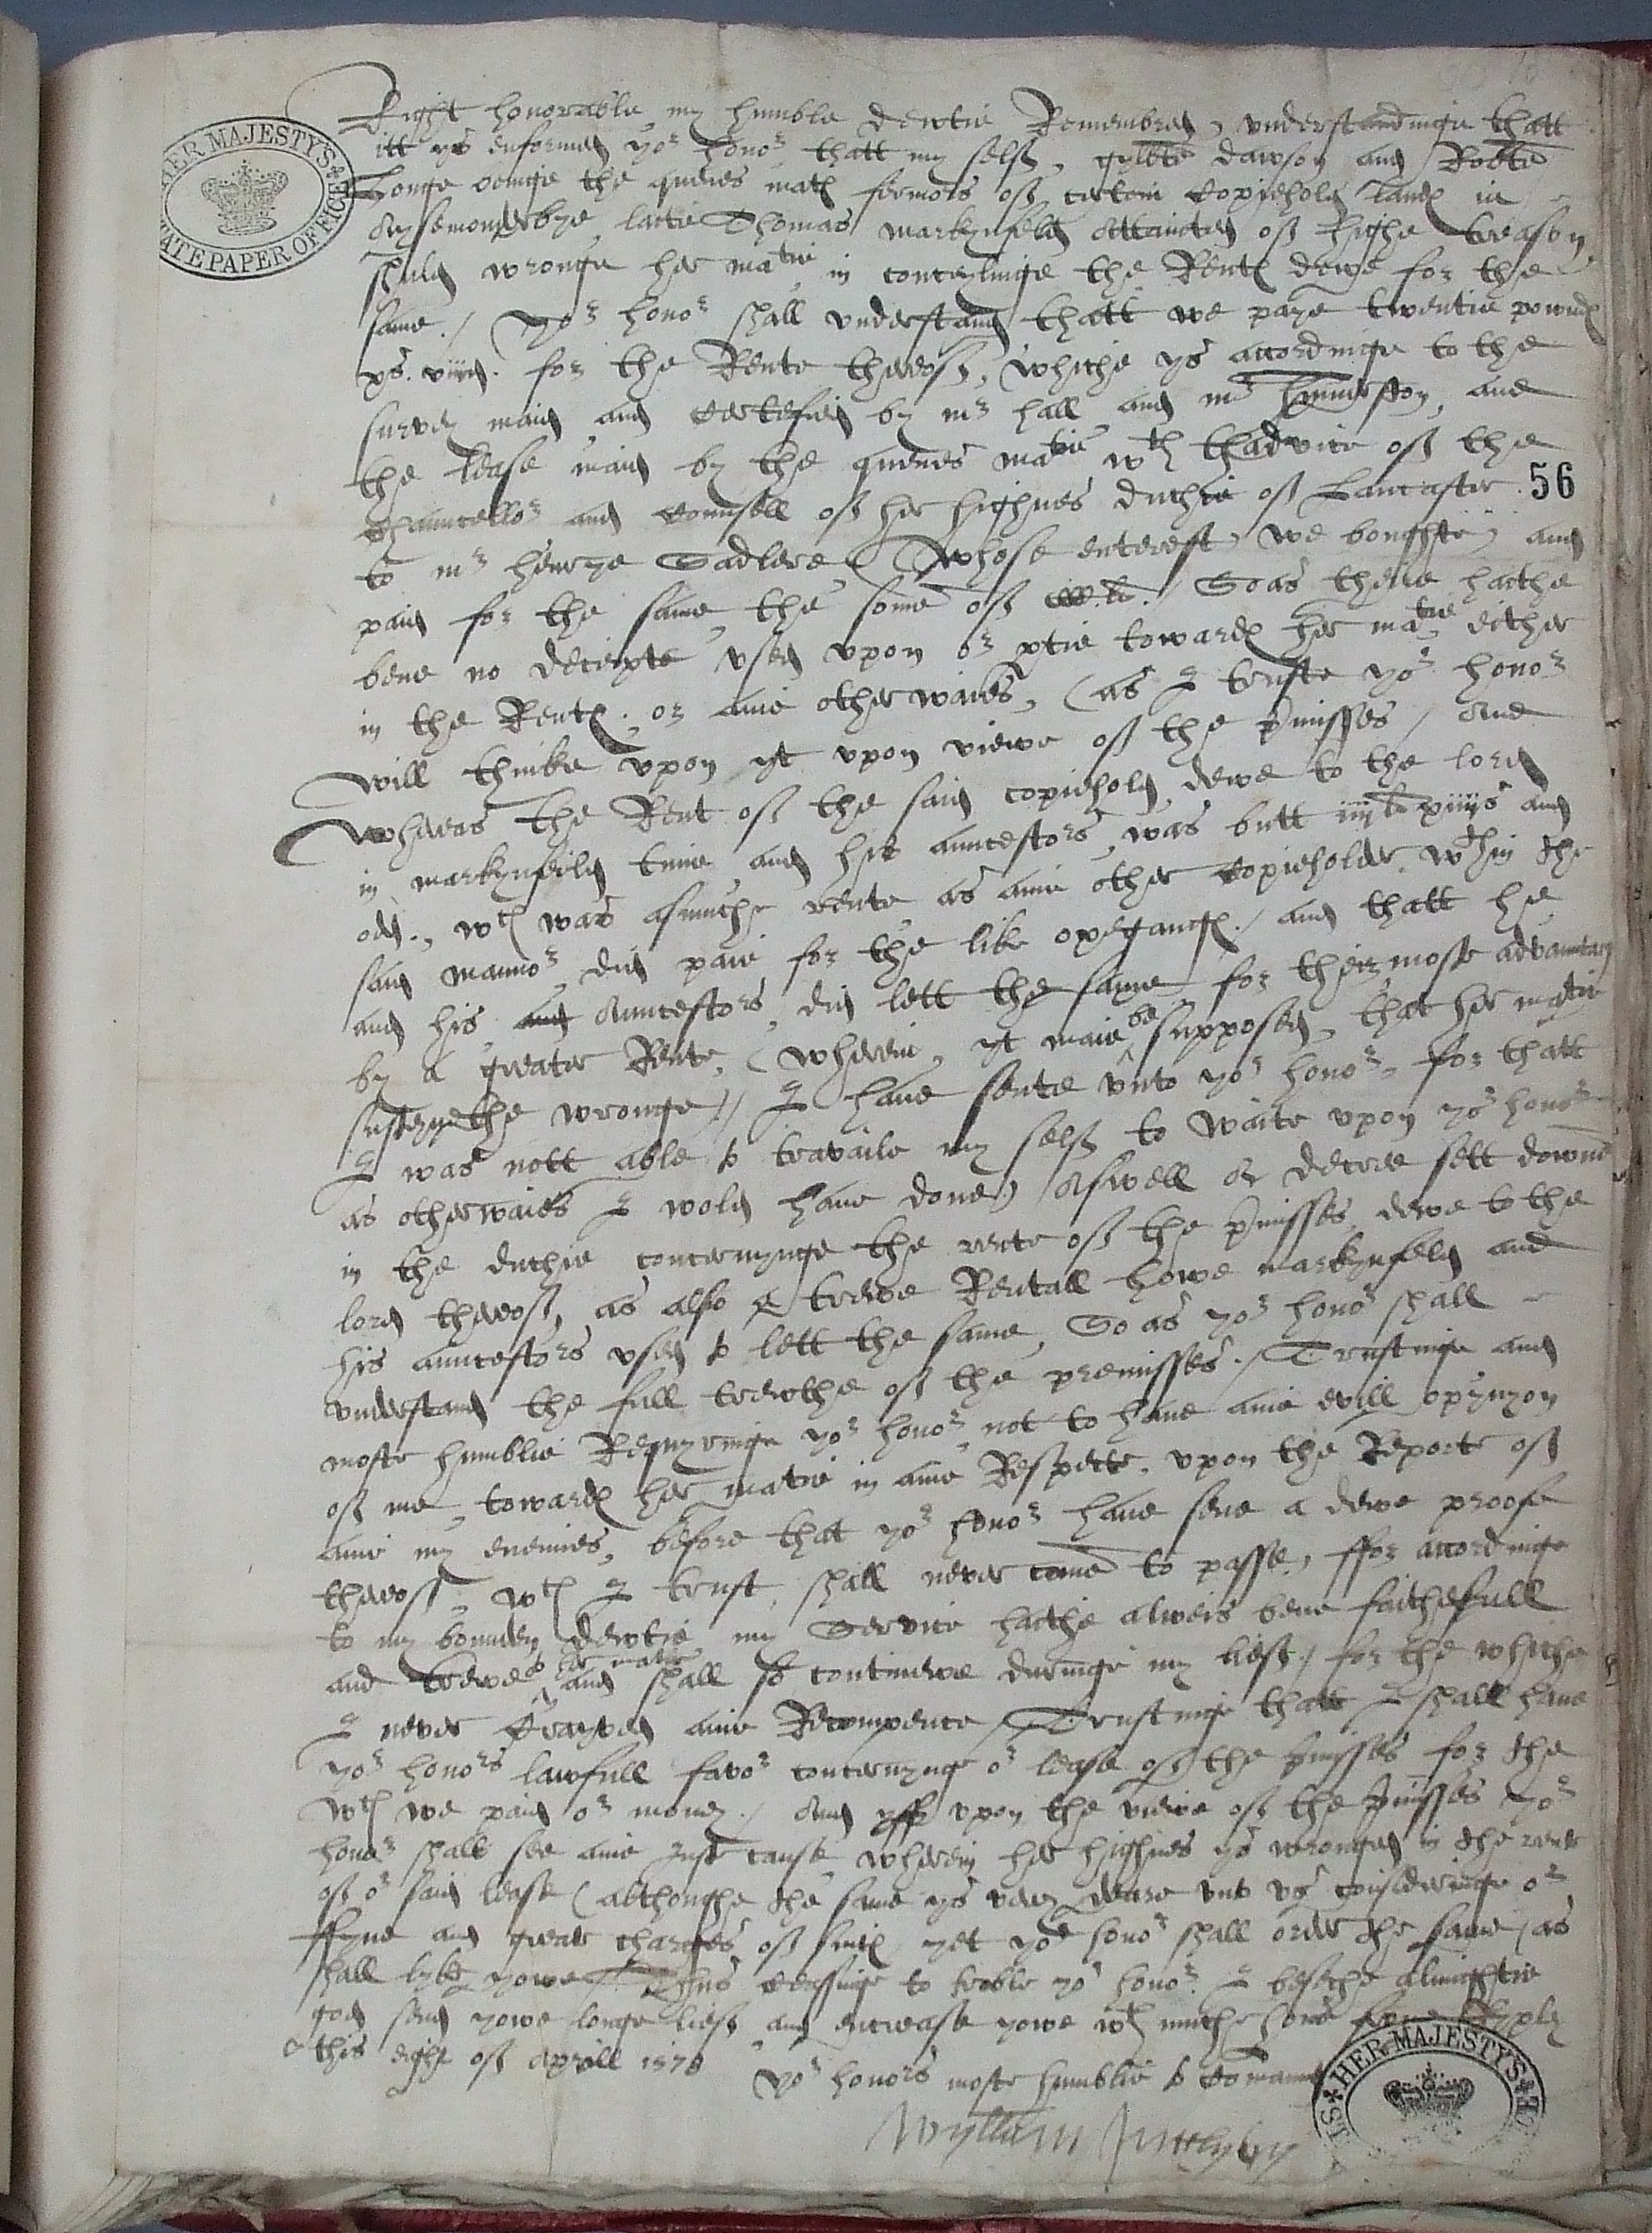 Right honorable my humble dewtie Remembred, understandinge thatt
itt ys enformed yor honor thatt my self, gylbte dawson and Robte
Longe beinge the quenes matꝭ fermors of certein Copiehold landꝭ in
Aysmonderbye late Thomas markynfeld Attainted of highe treason
shuld wronge her matie in concealinge the Rentꝭ dewe for the
same. / Yor honor shall understand thatt we paye twentie powndꝭ
xs. viijd. for the Rente therof, whiche ys accordinge to the
survey maid and certefied by mr hall and mr and
the lease maid by the quenes matie wth thadvice of the
Chauncellor and Counsell of her highnes duchie of Lancaster
56
to mr henrye Sadlere (Whose enterest we boughte) and
paid for the same the some of So as there hathe
bene no deceipte used upon or ptie towardꝭ her matie eether
in the Rentꝭ. or anie other waies, (as I truste yor honor
will thinke upon yt upon viewe of the pmisses / And
Wheras the Rent of the said copiehold dewe to the lord
in markynfeild time and his auncestors was butt iiijli xiiijs and
od., wch was asmuche rente as anie other Copieholder wthin the
said mannor did paie for the like oxegangꝭ. / and thatt he
and his and Auncestors did lett the same for their most advauntag
by a greater Rente, (wherein yt maie be supposed, that her matie
susteynethe wronge)/ I have sente unto yor honor, for thatt
I was nott able to travaile my self to waite upon yor honor
as otherwaies I wold have done) Aswell or decree sett downe
in the duchie concernynge the rente of the pmisses dewe to the
lord therof, as also a trewe Rentall howe markynfeld and
his auncestors used to lett the same, So as yor honor shall
understand the full trewthe of the premisses. / Trustinge and
moste humblie Requyringe yor honor not to have anie evill opynyon
of me towardꝭ her matie in anie Respecte, upon the Reporte of
anie my enemies, before that yor honor have sene a dewe proofe
therof, wch I trust shall never come to passe, ffor accordinge
to my bounden dewtie my Service hathe alweis bene faithefull
and trewe to her matie and shall so contineve duringe my lief, for the whiche
I never Craved anie Recompence / Trustinge thatt I shall have
yor honors lawfull favor concernynge or lease of the pmisses for the
wch we paid or money. / And yff upon the viewe of the pmisses yor
honor shall see anie Just cause wherein her highnes ys wronged in the rente
of or said lease (althoughe the same ys very deare unto us consideringe or
ffyne and great charges of suitꝭ yet yor honor shall order the same (as
shall lyke yowe/ Thus ceassinge to troble yor honor. I beseche almightie
god send yowe longe lief and encrease yowe wth muche honor from Rypley
this eight of Aprill 1578
Yor honors moste humblie to Comaund
Wyllam Inglyby
HER MAJESTY'S STATE PAPER OFFICE
HER MAJESTY'S